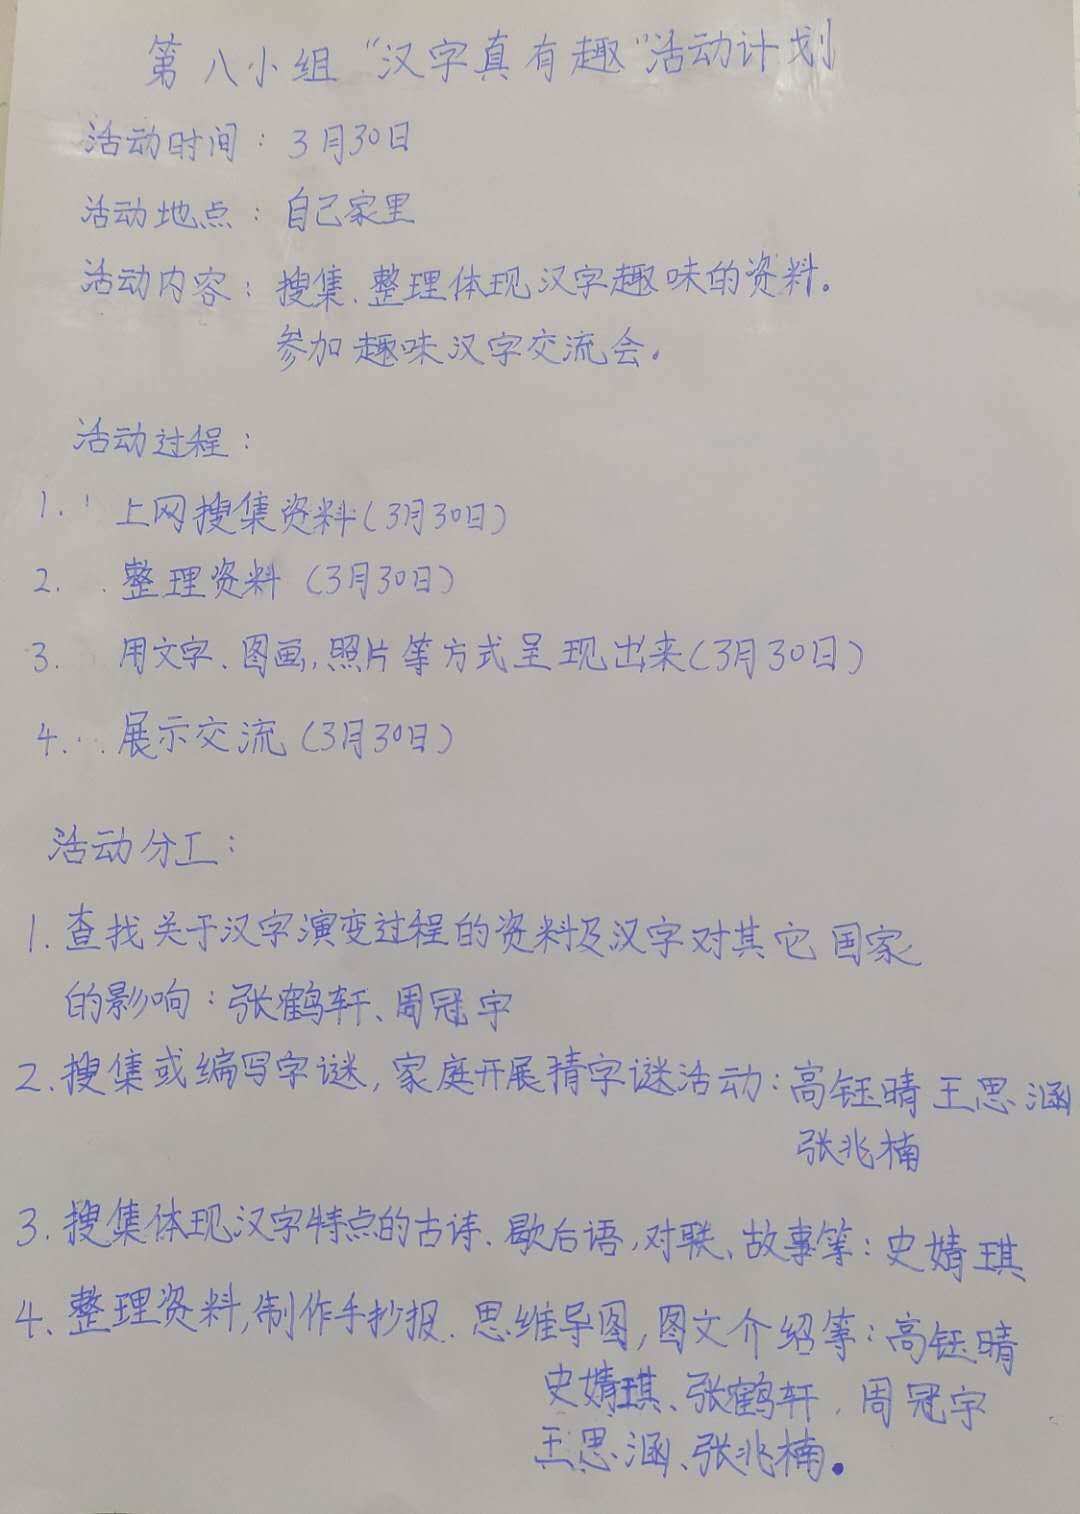 第八小组“汉字真有趣”活动计划
活动时间：3月30日
活动地点：自己家里
活动内容：搜集、整理体现汉字趣味的资料。
参加趣味汉字交流会。
活动过程：
1. 上网搜集资料(3月30日)
2. 整理资料(3月30日)
3. 用文字、图画,照片等方式呈现出来(3月30日)
4. 展示交流(3月30日)
活动分工：
1. 查找关于汉字演变过程的资料及汉字对其它国家
的影响：张鹤轩、周冠宇
2. 搜集或编写字谜,家庭开展猜字谜活动：高钰晴 王思涵
张兆楠
3. 搜集体现汉字特点的古诗、歇后语,对联、故事等：史婧琪
4、整理资料,制作手抄报、思维导图,图文介绍等：高钰晴
史婧琪、张鹤轩、周冠宇
王思涵、张兆楠。